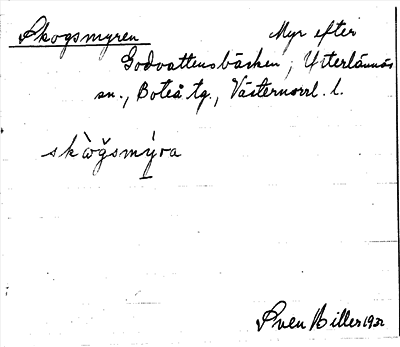 Skogsmyren Myr efter
Godvattensbäcken, Ytterlännäs
sn., Boteå tg., Västernorrl. l.
skὼg̀smýra
Sven Biller 1932